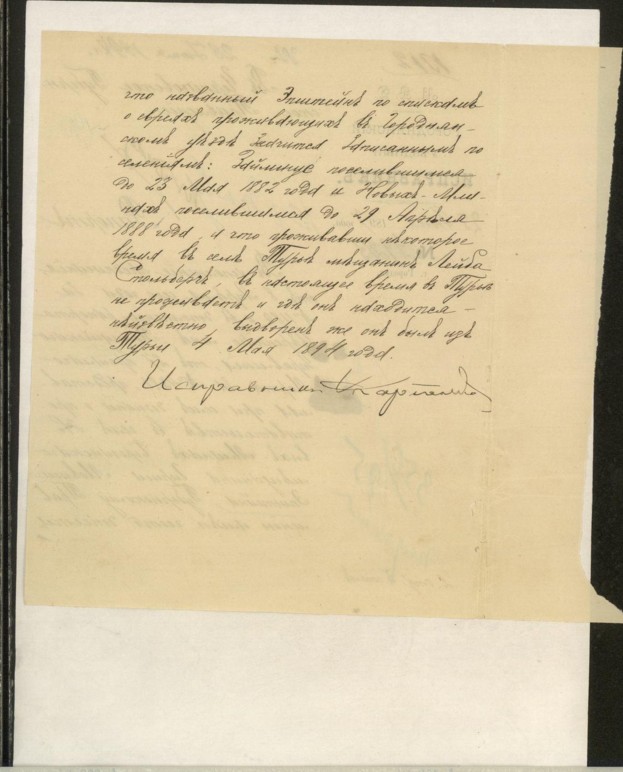 что названный Эпштейнъ по спискамъ
о евреяхъ проживающихъ въ Городнян-
скомъ уѣздѣ значится записаннымъ по
селеніямъ: Займище поселившимся
до 23 Мая 1882 года и Новыхъ-Мли-
нахъ поселившимся до 29 Апрѣля
1888 года, и что проживавшій нѣкоторое
время въ селѣ Турьѣ мѣщанинъ Лейба
Стольбергъ, въ настоящее время въ Турьѣ
не проживаетъ и гдѣ онъ находится -
неизвѣстно, выдворенъ же онъ былъ изъ
Турьи 4 Мая 1894 года.
Исправникъ